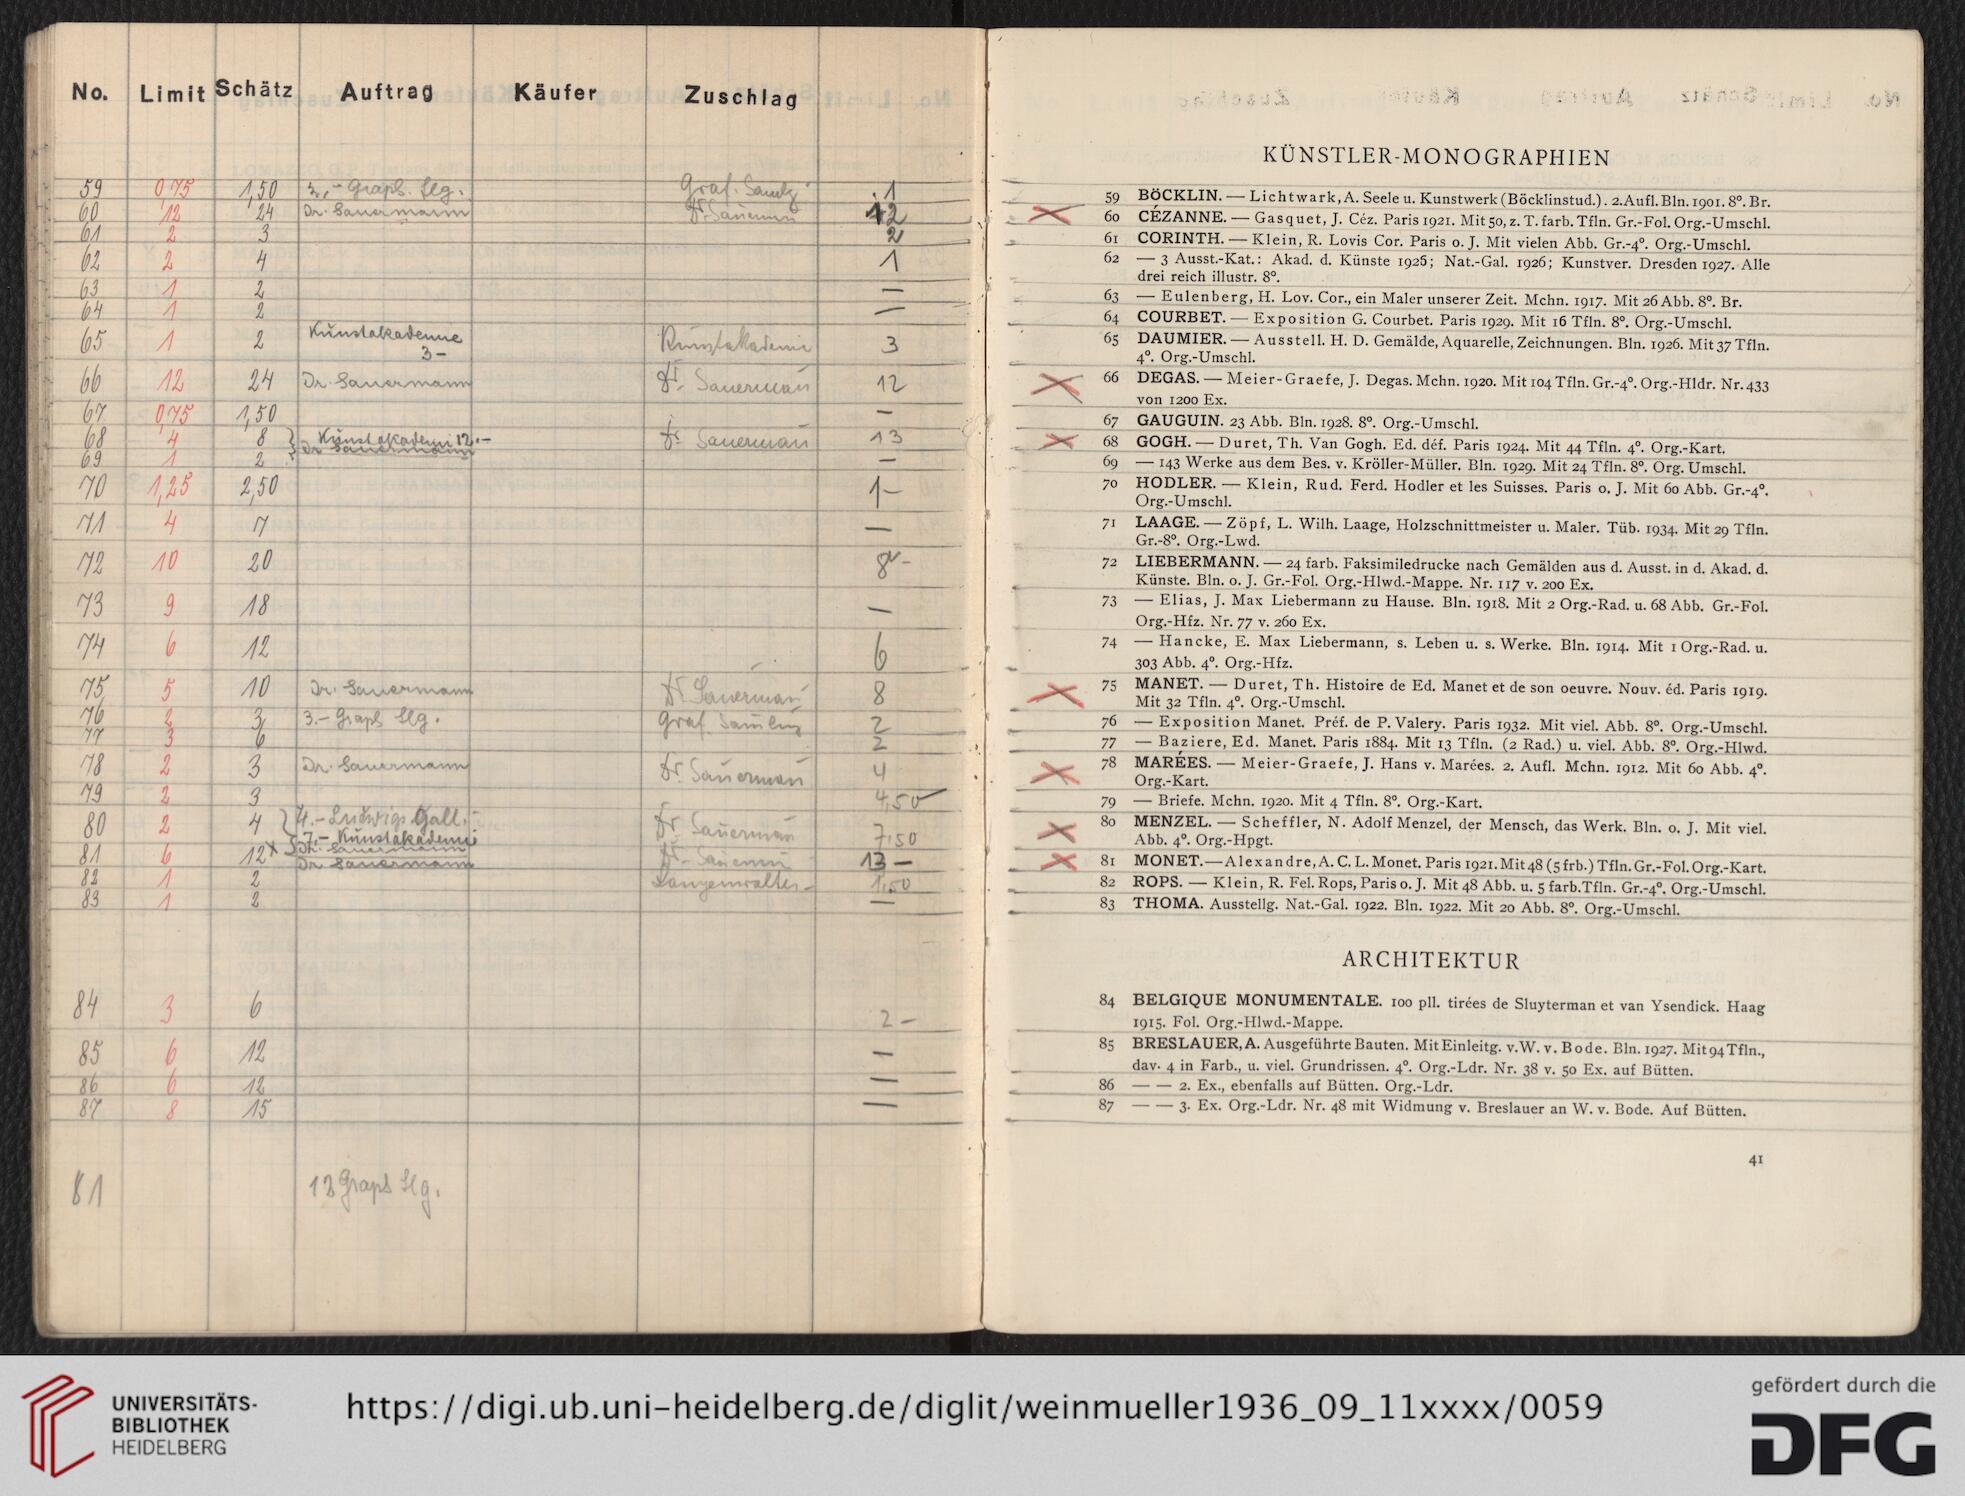 No. Limit Schätz Auftrag Käufer Zuschlag
59 0,75 1,50 3,- Graph. Slg. 1
60 12 24 Dr. Sauermann Dr. Sauermann 12
61 2 3 2
62 2 4 1
63 1 2 —
64 1 2 —
65 1 2 Kunstakademie Kunstakademie 3
3-
66 12 24 Dr. Sauermann Dr. Sauermann 12
67 0,75 1,50 —
68 4 8 Kunstakademie 12.- Dr. Sauermann 13
69 1 2 Dr. Sauermann —
70 1,25 2,50 1-
71 4 7 —
72 10 20 8-
73 9 18 —
74 6 12 6
75 5 10 Dr. Sauermann Dr. Sauermann 8
76 2 3 3.- Graph Slg. 2
77 3 6 2
78 2 3 Dr. Sauermann Dr. Sauermann 4
79 2 3 4,50
80 2 4 4.- Ludwigs Gall. Dr. Sauermann 7,50
7,- Kunstakademie
Dr. Sauermann
81 6 12 Dr. Sauermann Dr. Sauermann 13 —
82 1 2 1,50
83 1 2 —
84 3 6 2 -
85 6 12 —
86 6 12 —
87 8 15 —
81 Graph Slg.
KÜNSTLER-MONOGRAPHIEN
59 BÖCKLIN. — Lichtwark, A. Seele u. Kunstwerk (Böcklinstud.). 2. Aufl. Bln. 1901. 8°. Br.
60 CÉZANNE. — Gasquet, J. Céz. Paris 1921. Mit 50, z. T. farb. Tfln. Gr.-Fol. Org.-Umschl.
61 CORINTH. — Klein, R. Lovis Cor. Paris o. J. Mit vielen Abb. Gr.-4°. Org.-Umschl.
62 — 3 Ausst.-Kat.: Akad. d. Künste 1926; Nat.-Gal. 1926; Kunstver. Dresden 1927. Alle
drei reich illustr. 8°.
63 — Eulenberg, H. Lov. Cor., ein Maler unserer Zeit. Mchn. 1917. Mit 26 Abb. 8°. Br.
64 COURBET. — Exposition G. Courbet. Paris 1929. Mit 16 Tfln. 8°. Org.-Umschl.
65 DAUMIER. — Ausstell. H. D. Gemälde, Aquarelle, Zeichnungen. Bln. 1926. Mit 37 Tfln.
4°. Org.-Umschl.
66 DEGAS. — Meier-Graefe, J. Degas. Mchn. 1920. Mit 104 Tfln. Gr.-4°. Org.-Hldr. Nr. 433
von 1200 Ex.
67 GAUGUIN. 23 Abb. Bln. 1928. 8°. Org.-Umschl.
68 GOGH. — Duret, Th. Van Gogh. Ed. déf. Paris 1924. Mit 44 Tfln. 4°. Org.-Kart.
69 — 143 Werke aus dem Bes. v. Kröller-Müller. Bln. 1929. Mit 24 Tfln. 8°. Org. Umschl.
70 HODLER. — Klein, Rud. Ferd. Hodler et les Suisses. Paris o. J. Mit 60 Abb. Gr.-4°.
Org.-Umschl.
71 LAAGE. — Zöpf, L. Wilh. Laage, Holzschnittmeister u. Maler. Tüb. 1934. Mit 29 Tfln.
Gr.-8°. Org.-Lwd.
72 LIEBERMANN. — 24 farb. Faksimiledrucke nach Gemälden aus d. Ausst. in d. Akad. d.
Künste. Bln. o. J. Gr.-Fol. Org.-Hlwd.-Mappe. Nr. 117 v. 200 Ex.
73 — Elias, J. Max Liebermann zu Hause. Bln. 1918. Mit 2 Org.-Rad. u. 68 Abb. Gr.-Fol.
Org.-Hfz. Nr. 77 v. 260 Ex.
74 — Hancke, E. Max Liebermann, s. Leben u. s. Werke. Bln. 1914. Mit 1 Org.-Rad. u.
303 Abb. 4°. Org.-Hfz.
75 MANET. — Duret, Th. Histoire de Ed. Manet et de son oeuvre. Nouv. éd. Paris 1919.
Mit 32 Tfln. 4°. Org.-Umschl.
76 — Exposition Manet. Préf. de P. Valery. Paris 1932. Mit viel. Abb. 8°. Org.-Umschl.
77 — Baziere, Ed. Manet. Paris 1884. Mit 13 Tfln. (2 Rad.) u. viel. Abb. 8°. Org.-Hlwd.
78 MARÉES. — Meier-Graefe, J. Hans v. Marées. 2. Aufl. Mchn. 1912. Mit 60 Abb. 4°.
Org.-Kart.
79 — Briefe. Mchn. 1920. Mit 4 Tfln. 8°. Org.-Kart.
80 MENZEL. — Scheffler, N. Adolf Menzel, der Mensch, das Werk. Bln. o. J. Mit viel.
Abb. 4°. Org.-Hpgt.
81 MONET. — Alexandre, A. C. L. Monet. Paris 1921. Mit 48 (5 frb.) Tfln. Gr.-Fol. Org.-Kart.
82 ROPS. — Klein, R. Fel. Rops, Paris o. J. Mit 48 Abb. u. 5 farb. Tfln. Gr.-4°. Org.-Umschl.
83 THOMA. Ausstellg. Nat.-Gal. 1922. Bln. 1922. Mit 20 Abb. 8°. Org.-Umschl.
ARCHITEKTUR
84 BELGIQUE MONUMENTALE. 100 pll. tirées de Sluyterman et van Ysendick. Haag
1915. Fol. Org.-Hlwd.-Mappe.
85 BRESLAUER, A. Ausgeführte Bauten. Mit Einleitg. v. W. v. Bode. Bln. 1927. Mit 94 Tfln.,
dav. 4 in Farb., u. viel. Grundrissen. 4°. Org.-Ldr. Nr. 38 v. 50 Ex. auf Bütten.
86 — — 2. Ex., ebenfalls auf Bütten. Org.-Ldr.
87 — — 3. Ex. Org.-Ldr. Nr. 48 mit Widmung v. Breslauer an W. v. Bode. Auf Bütten.
41
UNIVERSITÄTS-
BIBLIOTHEK
HEIDELBERG
https://digi.ub.uni-heidelberg.de/diglit/weinmueller1936_09_11xxxx/0059
gefördert durch die
DFG